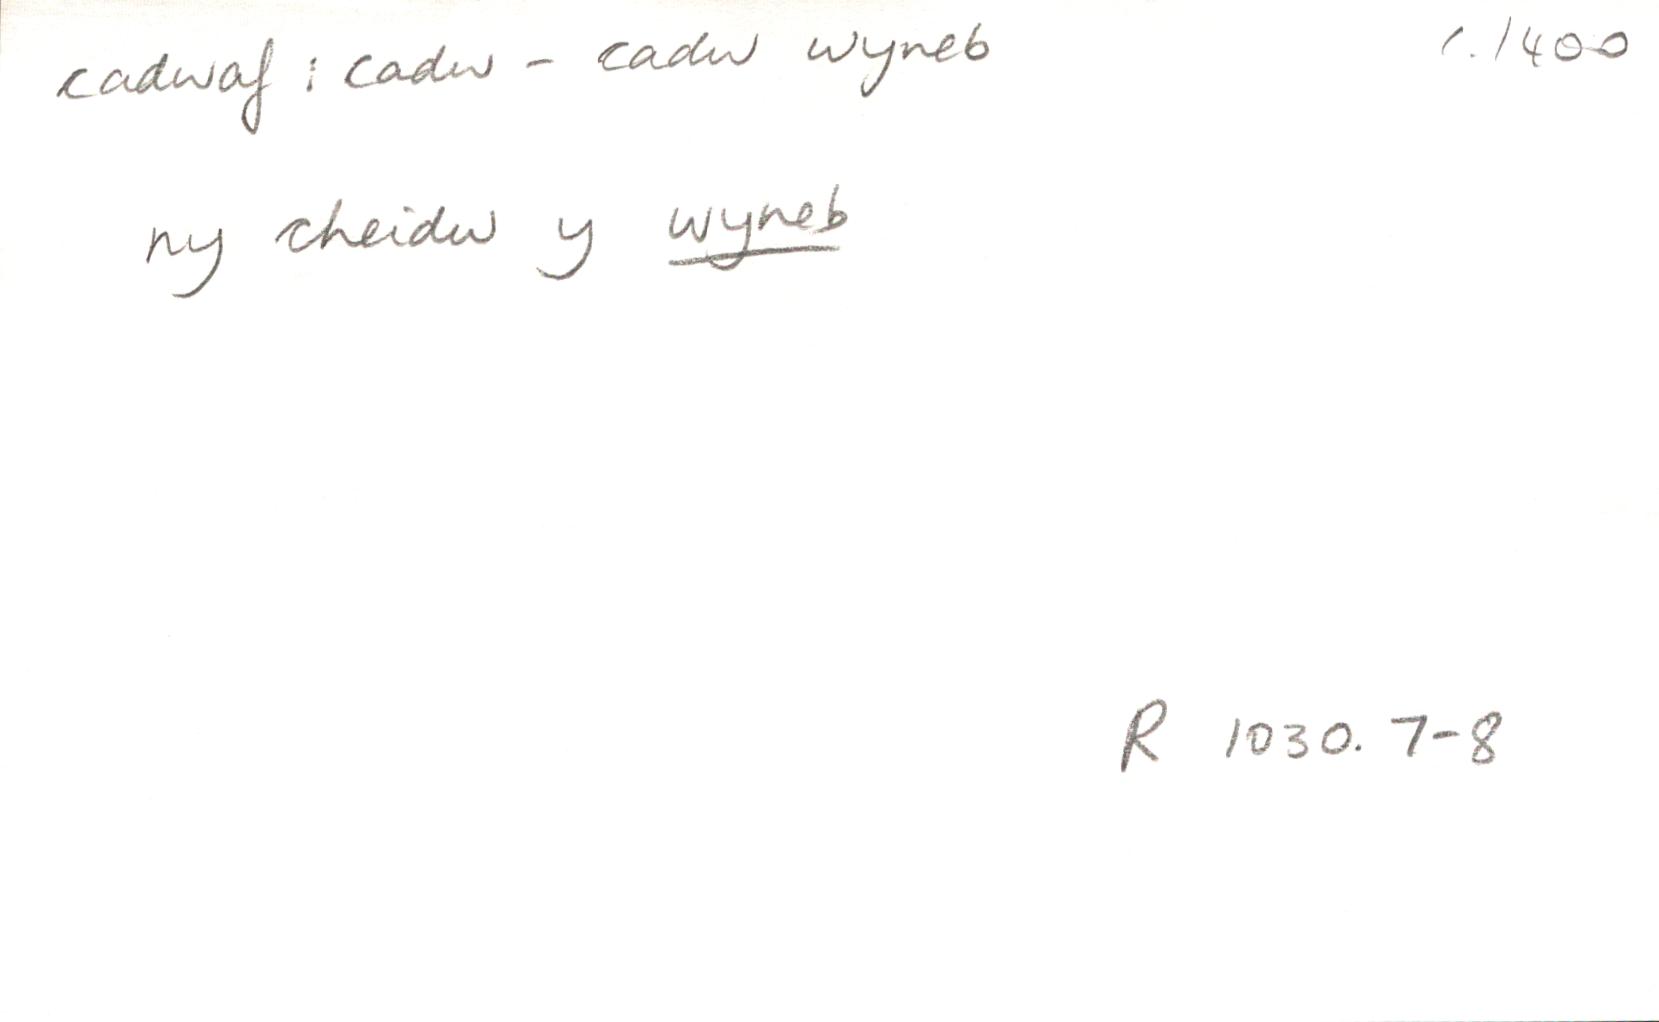 cadwaf : cadw - cadw wyneb c.1400
ny cheidw y wyneb
R 1030. 7-8